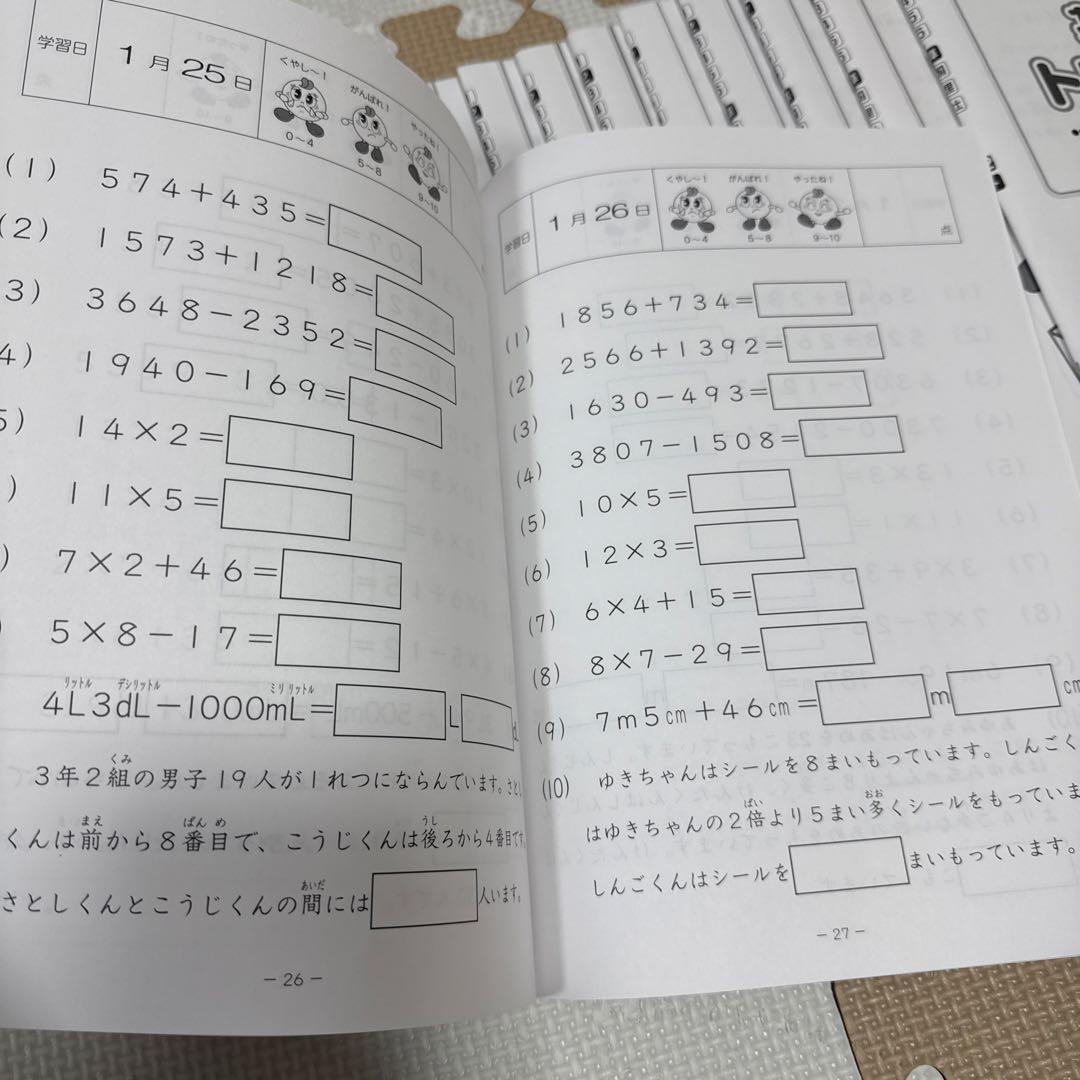 学習日
1月25日
くやし～！
がんばれ！
やったね！
0～4
5～8
9～10
(1) 574+435=
(2) 1573+1218=
3) 3648-2352=
4) 1940-169=
5) 14×2=
) 11×5=
) 7×2+46=
) 5×8-17=
リットル デシリットル ミリリットル
4L3dL-1000mL= L d
くみ
3年2組の男子19人が1れつにならんでいます。さとし
まえ ばんめ うし
くんは前から8番目で、こうじくんは後ろから4番目です。
あいだ
さとしくんとこうじくんの間には 人います。
- 26 -
学習日
1月26日
くやし～！
がんばれ！
やったね！
0～4
5～8
9～10
点
(1) 1856+734=
(2) 2566+1392=
(3) 1630-493=
(4) 3807-1508=
(5) 10×5=
(6) 12×3=
(7) 6×4+15=
(8) 8×7-29=
(9) 7m5cm+46cm= m cm
(10) ゆきちゃんはシールを8まいもっています。しんごく
ばい おお
はゆきちゃんの2倍より5まい多くシールをもっていま
しんごくんはシールを まいもっています。
- 27 -